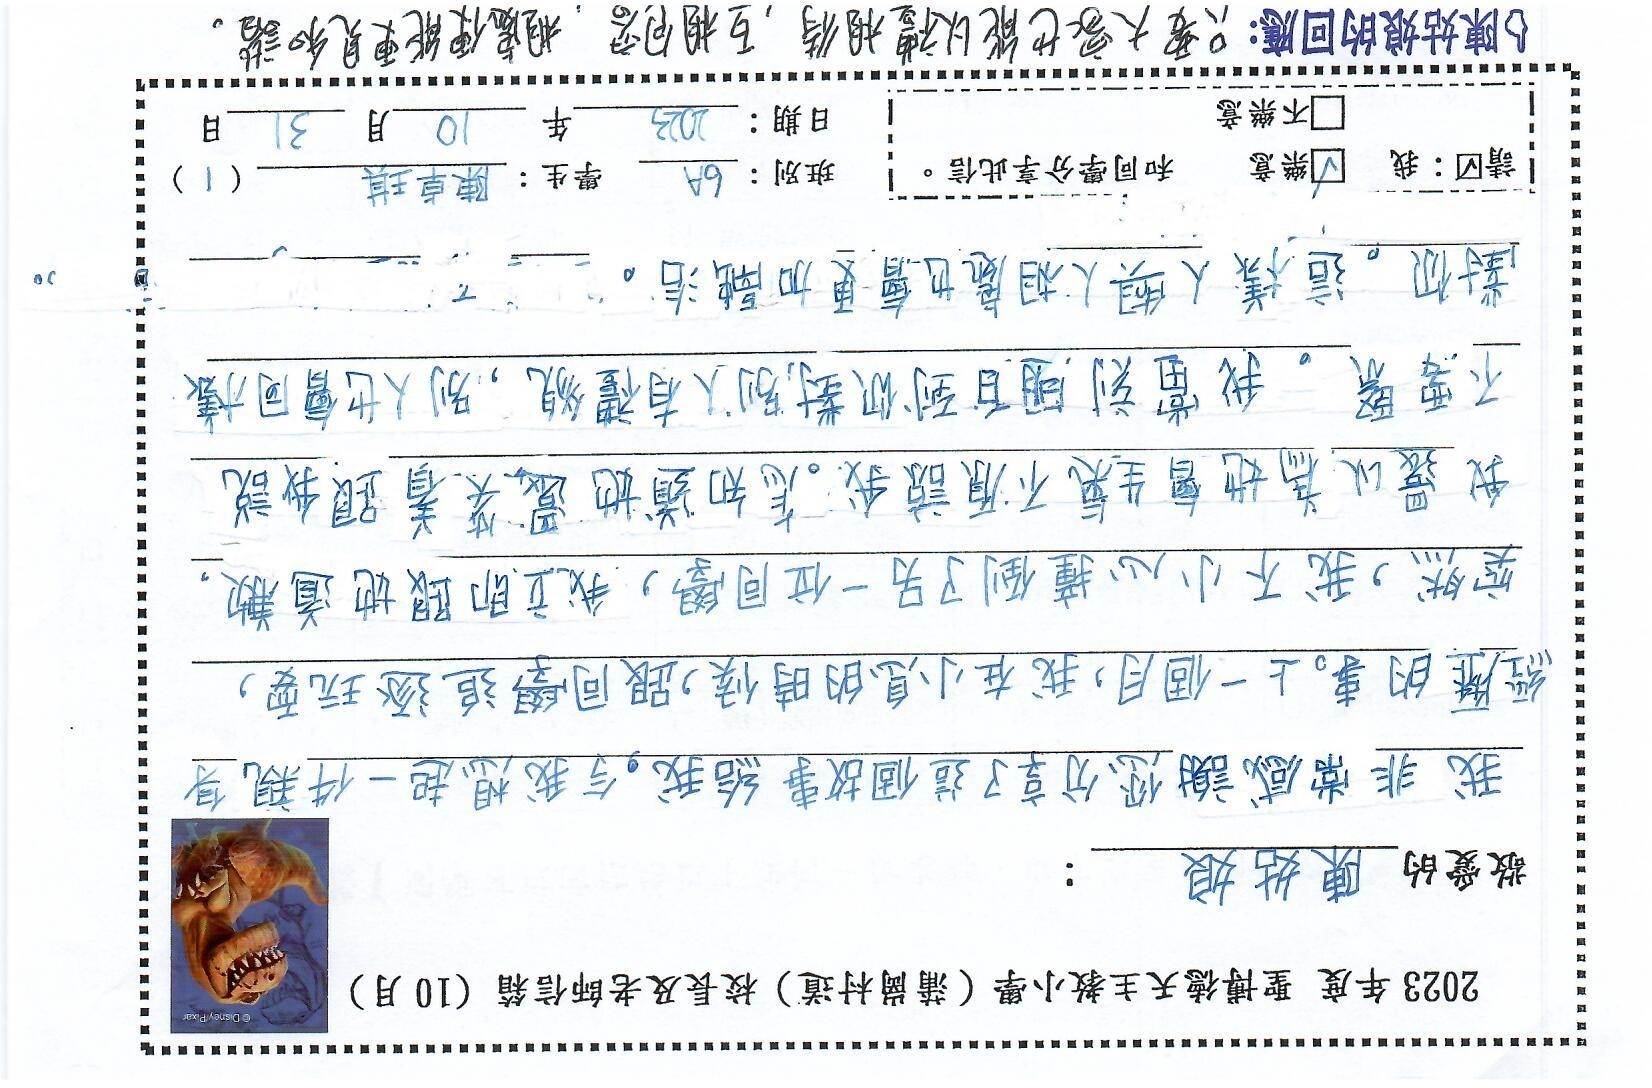 2023年度 聖博德天主教小學（蒲崗村道）校長及老師信箱（10月）
© Disney/Pixar
敬愛的 陳姑娘 ：
我非常感謝您分享了這個故事給我。令我想起一件親身
經歷的事。上一個月，我在小息的時候，跟同學追逐玩耍，
突然，我不小心撞倒了另一位同學，我立即跟她道歉。
我還以為她會生氣不原諒我。怎知道她還笑着跟我說
不要緊。我當刻明白到你對別人有禮貌，別人也會同樣
對你。這樣人與人相處也會更加融洽。
請☑：我 ☑樂意 和同學分享此信。
□不樂意
班別： 6A 學生： 陳卓琪 （ 1 ）
日期： 2023 年 10 月 31 日
陳姑娘的回應：只要大家也能以禮相待，互相包容，相處便能更見和諧。